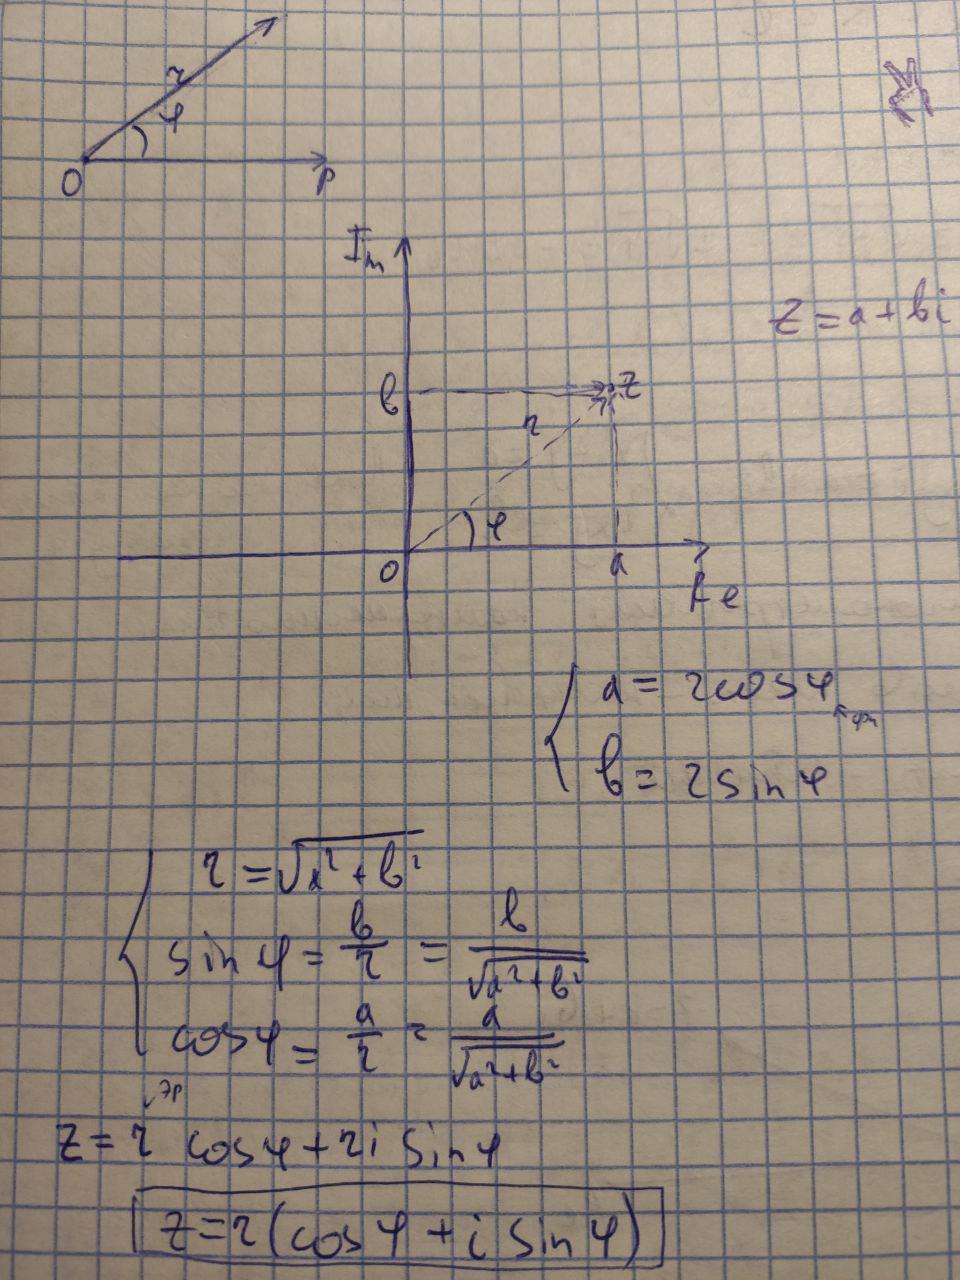 r
φ
O
p
Im
z = a + bi
b
z
r
φ
O
a
Re
a = r cos φ
фи
b = r sin φ
r = √(a² + b²)
sin φ = b/r = b/√(a² + b²)
cos φ = a/r = a/√(a² + b²)
эр
z = r cos φ + ri sin φ
z = r (cos φ + i sin φ)